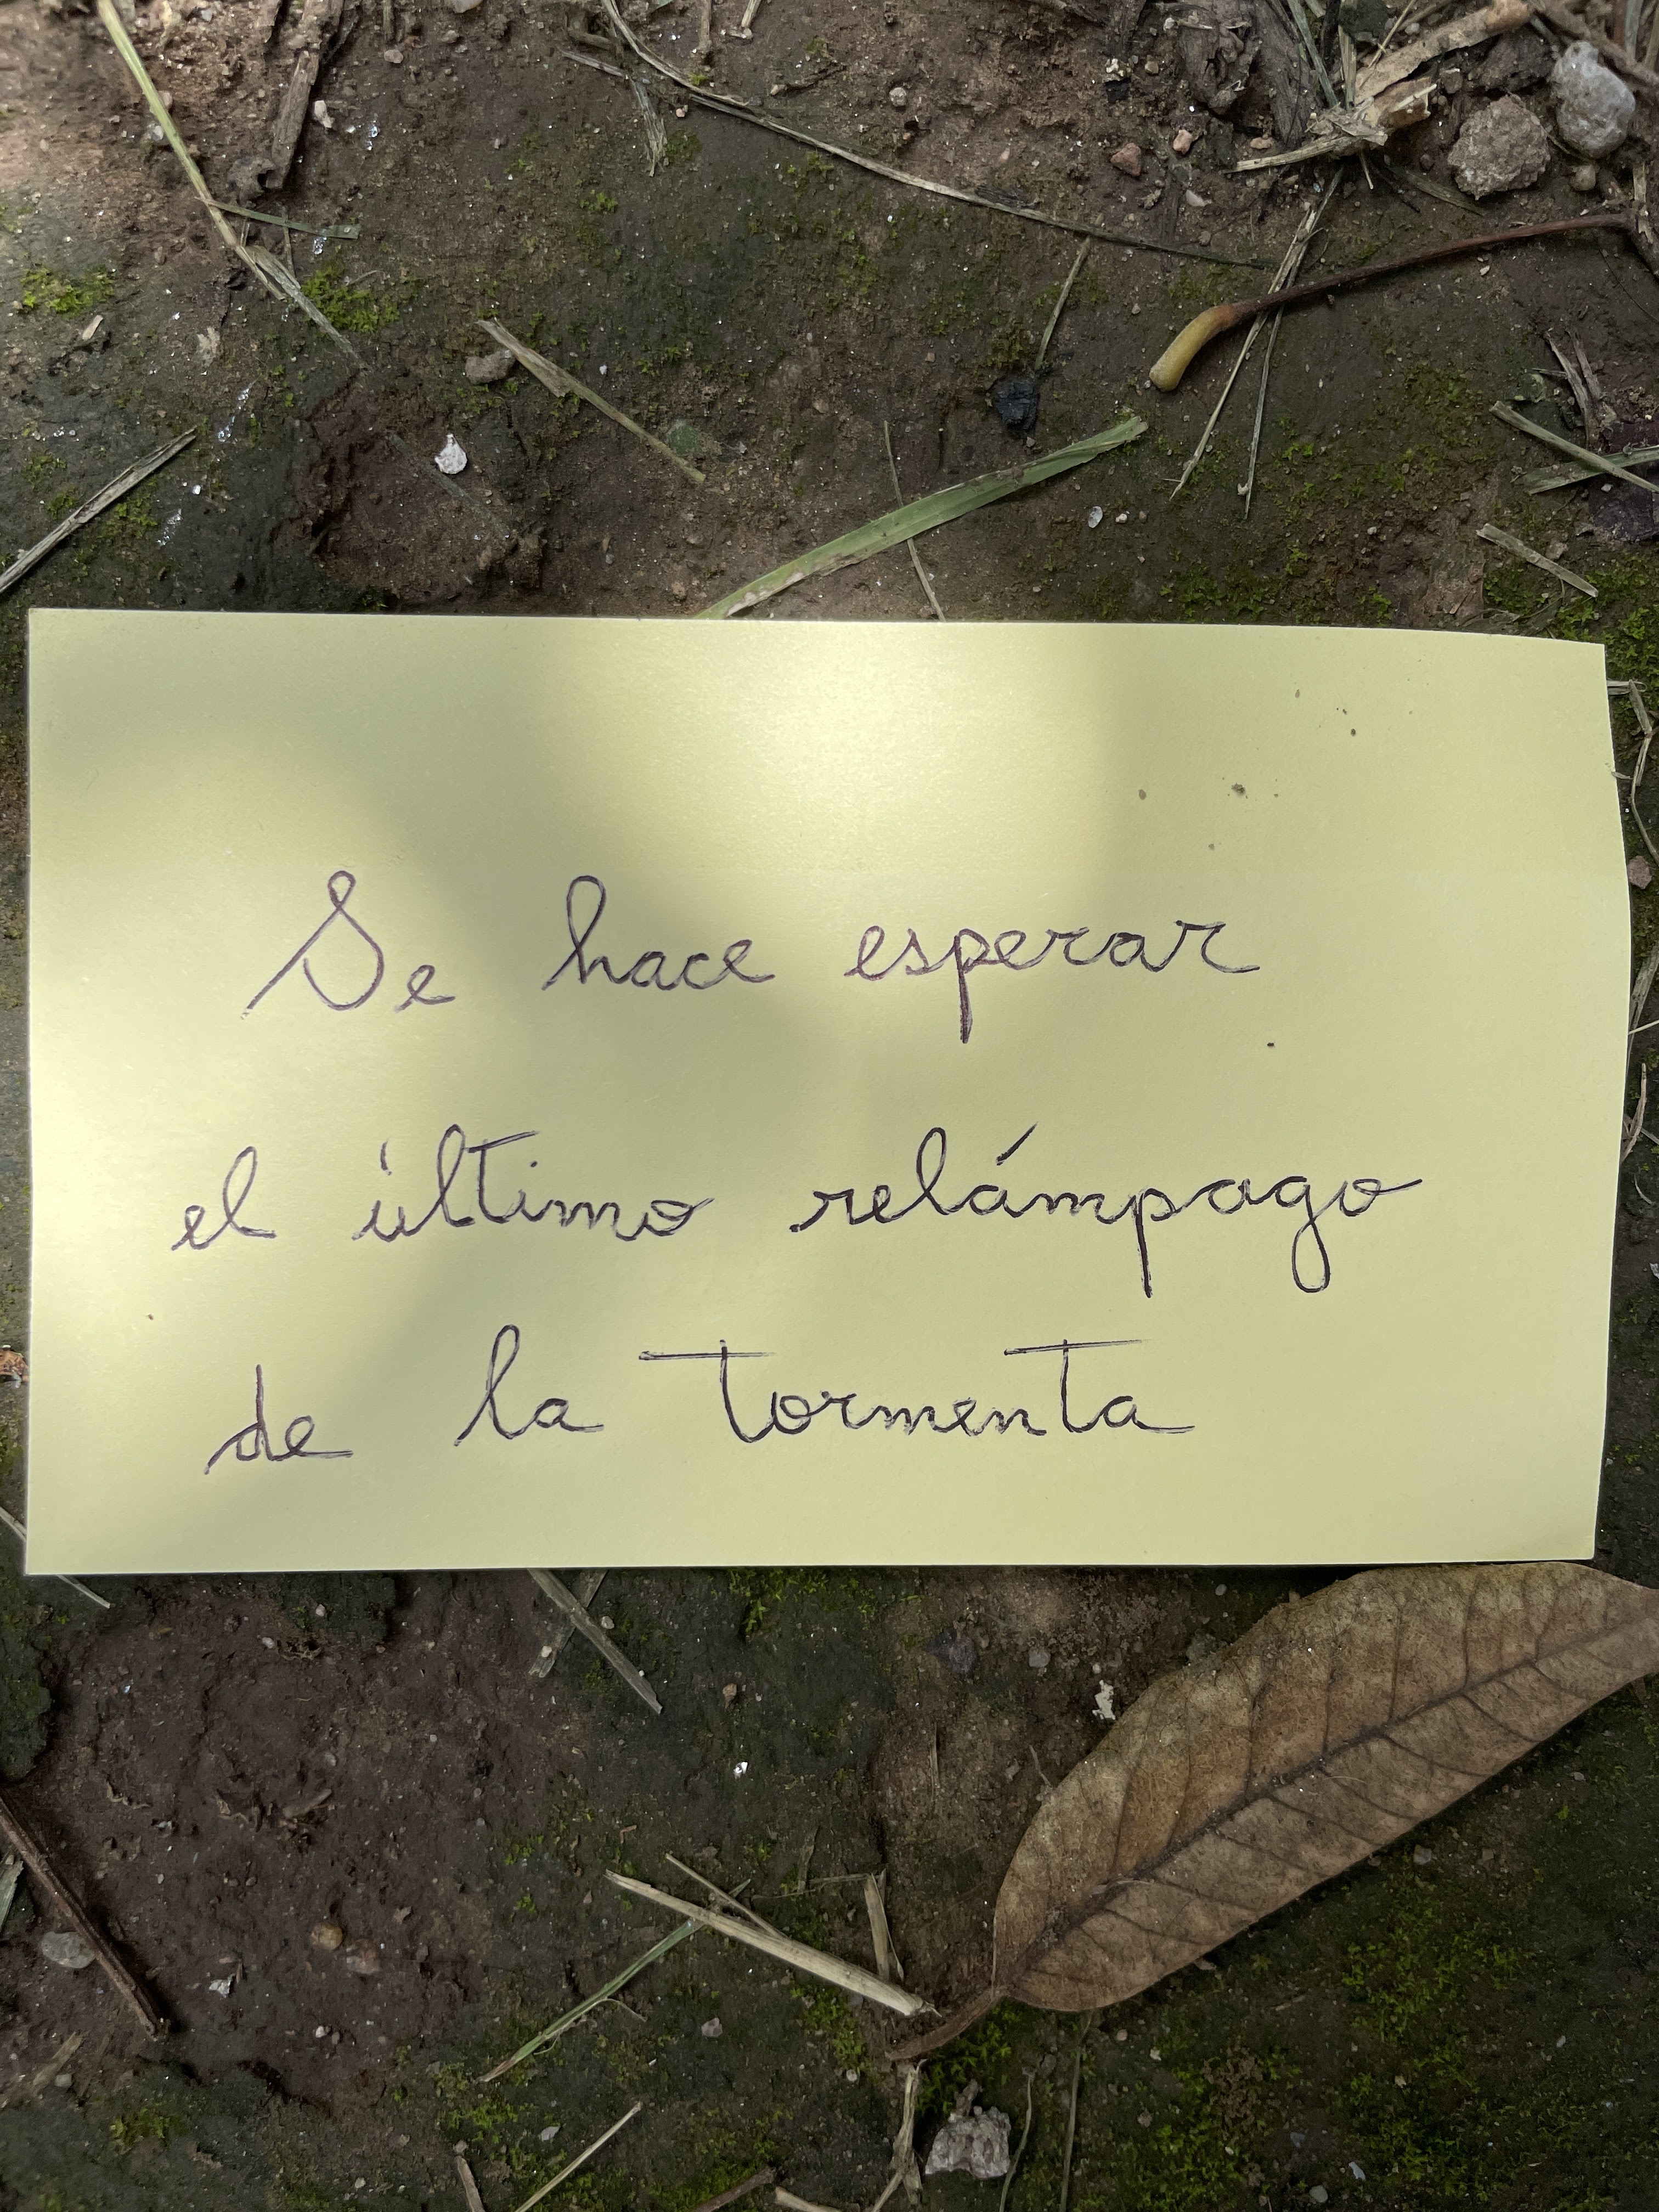 Se hace esperar
el último relámpago
de la tormenta